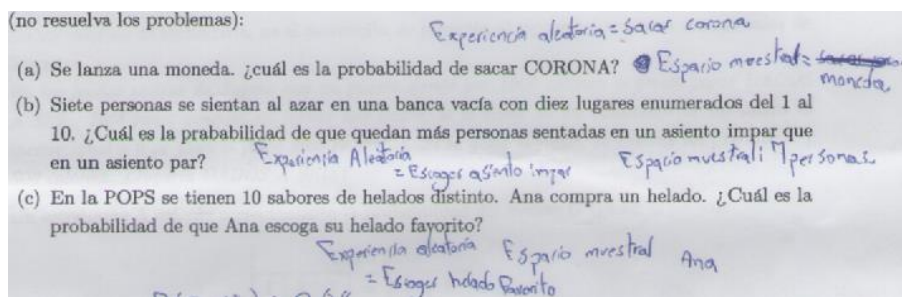 (no resuelva los problemas):
Experiencia aleatoria = Sacar corona
(a) Se lanza una moneda. ¿cuál es la probabilidad de sacar CORONA? Espacio muestral =
moneda
(b) Siete personas se sientan al azar en una banca vacía con diez lugares enumerados del 1 al
10. ¿Cuál es la prababilidad de que quedan más personas sentadas en un asiento impar que
en un asiento par? Experiencia Aleatoria
= Escoger asiento impar Espacio muestral: 7 personas.
(c) En la POPS se tienen 10 sabores de helados distinto. Ana compra un helado. ¿Cuál es la
probabilidad de que Ana escoga su helado favorito?
Experiencia aleatoria Espacio muestral Ana
= Escoger helado favorito